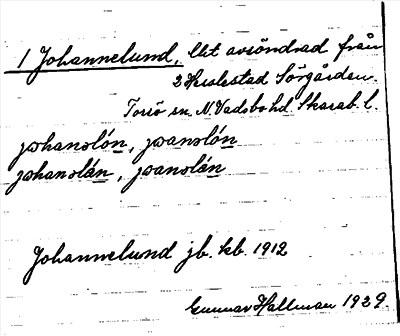 1 Johannelund, lht avsöndrad från
2 Huslestad Sörgården
Torsö sn. N. Vadsbo hd. Skarab. l.
johanslón, joanslón
johanslán, joanslán
Johannelund jb. kb. 1912
Gunnar Hallman 1929.